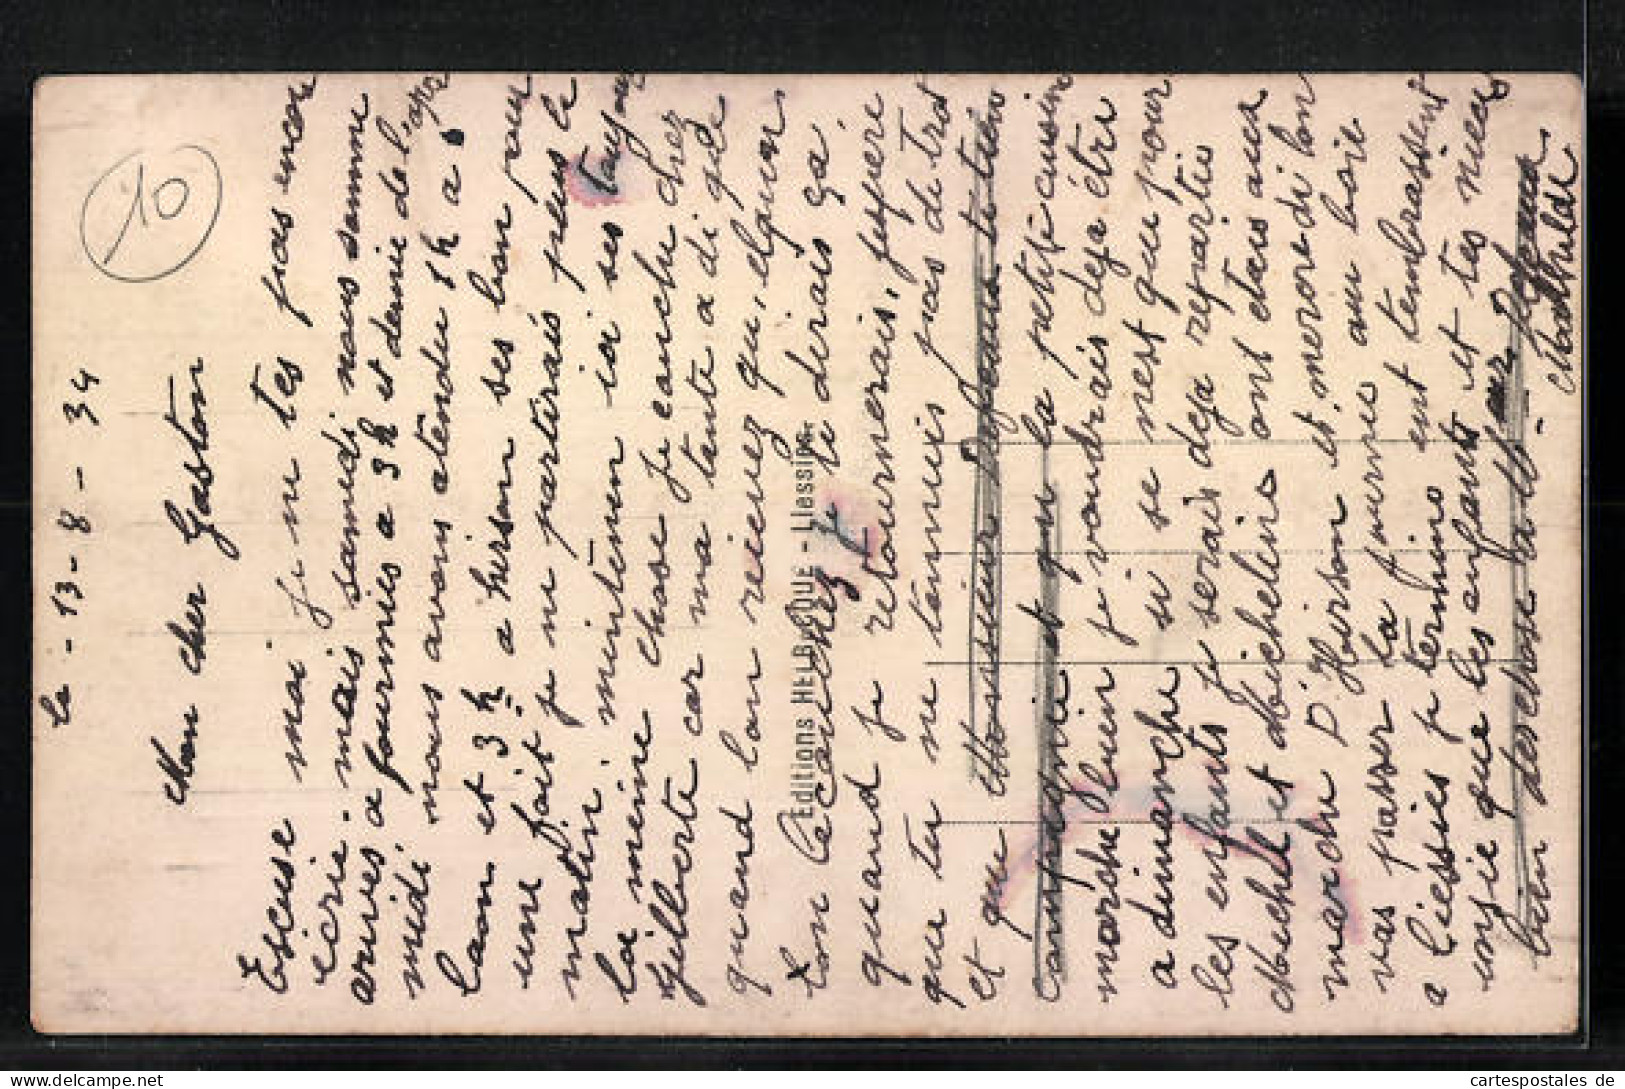 le - 13 - 8 - 34
Mon cher Gaston
Escuse moi je ne tes pas encor
écrie. mais samedi nous somme
arrives a fourmies a 3h et demie de l'apre
midi. nous avons atendu 1h a
laon et 3h a hirson ses bon pour
une fait je ne partirais plus le
matin mintenen ici ses toujour
la meme chose je couche chez
Gilberte car ma tante a di que
quand lon recevez quelquun
lon le chez je te dirais ça
quand je retournerais, jespère
que tu ne tennuis pas de trot
et que
la petite cusin
marche bien je voudrais deja être
a dimanche si se nest que pour
les enfants je serais deja repartie
Michel et Micheline ont etais aux
marche D'Hirson et mercredi lon
vas passer la journée au bois
a liessies je termine ent tembrassent
insie que les enfants et tes nieces
bien des chose a
Mathilde
Editions HELBECQUE - Liessies
10
cartespostales de